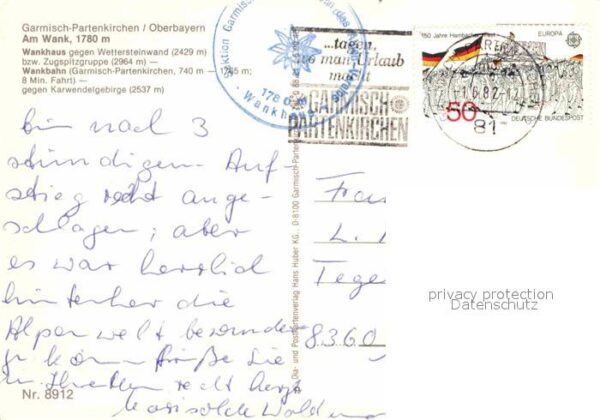 Garmisch-Partenkirchen / Oberbayern
Am Wank, 1780 m
Wankhaus gegen Wettersteinwand (2429 m)
bzw. Zugspitzgruppe (2964 m) —
Wankbahn (Garmisch-Partenkirchen, 740 m — 1745 m;
8 Min. Fahrt) —
gegen Karwendelgebirge (2537 m)
Sektion Garmisch
Wankhaus
1780 m
...tagen,
wo man Urlaub
macht
GARMISCH
PARTENKIRCHEN
150 Jahre Hambacher Fest
EUROPA
50
DEUTSCHE BUNDESPOST
-1.6.82-12
81
bin nach 3
stündigem Auf-
stieg recht ange-
schlagen; aber
es war herrlich
hinterher die
Alpenwelt besonder
Grüße Sie
recht herzl
Nr. 8912
Dia- und Postkartenverlag Hans Huber KG., D-8100 Garmisch-Partenkirchen
L.
Tege
8360
privacy protection
Datenschutz